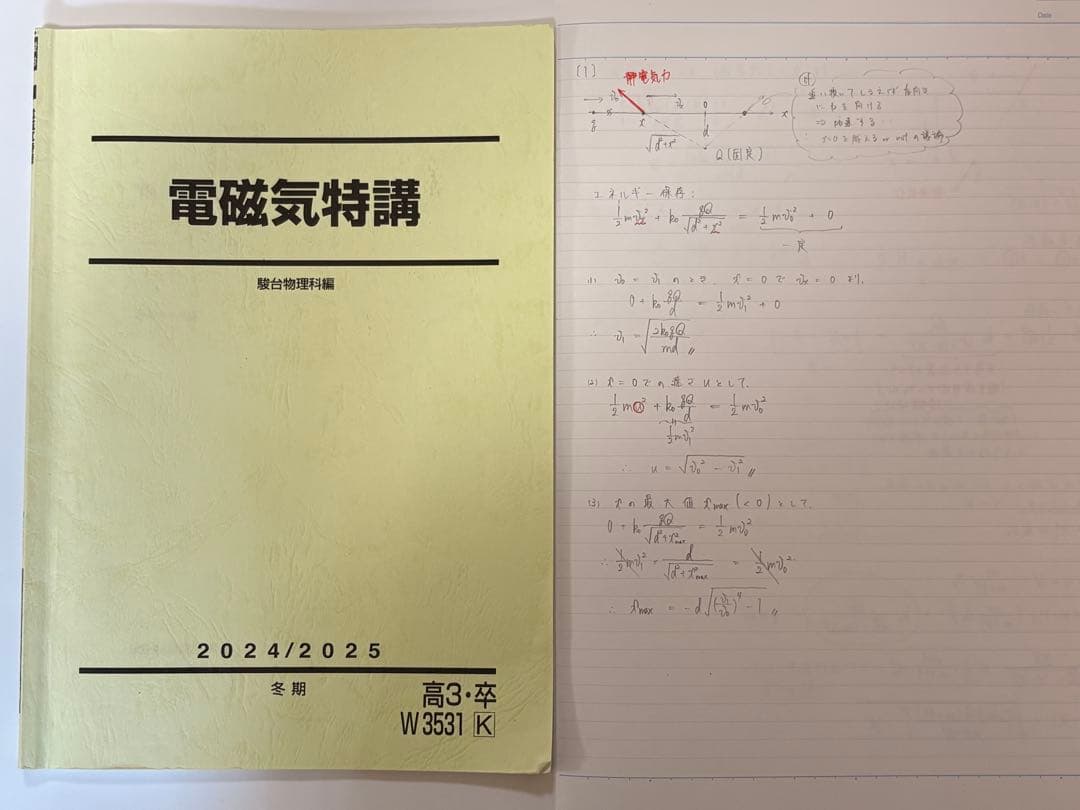 電磁気特講
駿台物理科編
2024/2025
冬期
高3・卒
W3531 K
Date
[1]
静電気力
x
0
x
q
d
√(d²+x²)
Q(固定)
⇒
エネルギー保存:
1/2 mvx² + k₀ qQ/√(d²+x²) = 1/2 mv₀² + 0
一定
(1) v₀ = v₁ のとき、x=0 で vx=0 より、
0 + k₀ qQ/d = 1/2 mv₁² + 0
∴ v₁ = √(2k₀qQ/md) 〃
(2) x=0での速さuとして、
1/2 mu² + k₀ qQ/d = 1/2 mv₀²
1/2 mv₁²
∴ u = √(v₀² - v₁²) 〃
(3) xの最大値 xmax (<0) として、
0 + k₀ qQ/√(d²+x²max) = 1/2 mv₀²
∴ 1/2 mv₁² · d/√(d²+x²max) = 1/2 mv₀²
∴ xmax = -d√((v₁/v₀)⁴ - 1) 〃